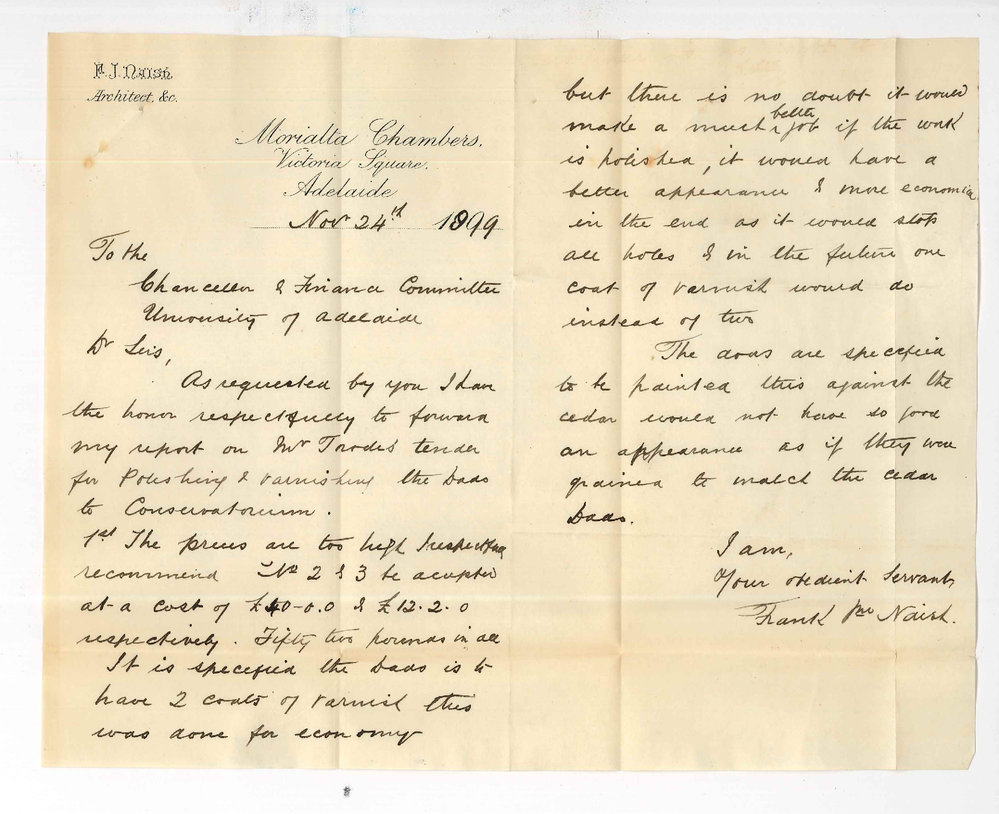 F. J. Naish
Architect, &c.
Morialta Chambers,
Victoria Square.
Adelaide
Nov 24th 1899
To the
Chancellor & Finance Committee
University of Adelaide
Dr Sirs,
As requested by you I have
the honor respectfully to forward
my report on Mr Trude's tender
for Polishing & varnishing the Dado
to Conservatorium.
1st The prices are too high I respectfully
recommend No 2 & 3 be accepted
at a cost of £40-0.0 & £12.2.0
respectively. Fifty two pounds in all
It is specified the Dado is to
have 2 coats of varnish this
was done for economy
but there is no doubt it would
make a much better job if the work
is polished, it would have a
better appearance & more economical
in the end as it would stop
all holes & in the future one
coat of varnish would do
instead of two
The doors are specified
to be painted this against the
cedar would not have so good
an appearance as if they were
grained to match the cedar
Dado.
I am,
Your obedient Servant,
Frank Jno Naish.